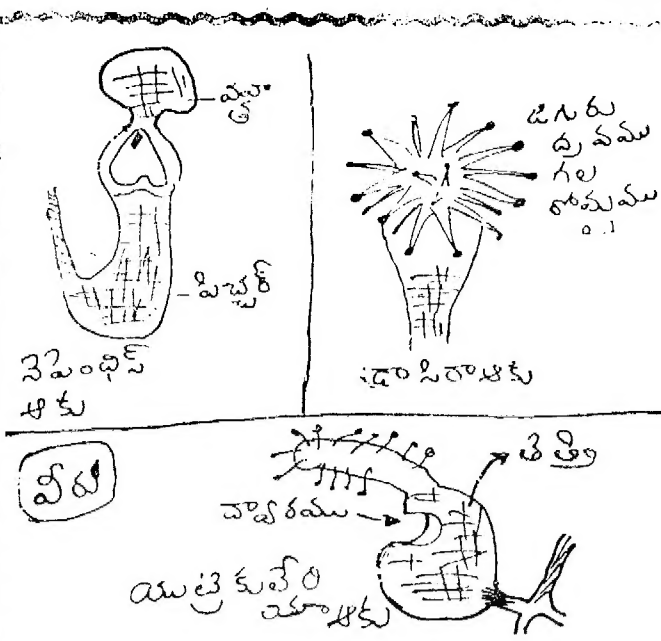 మూత
పిచ్చర్
నెపెంథిస్
ఆకు
జిగురు
ద్రవము
గల
రోమము
డ్రాసిరా ఆకు
వీరు
ద్వారము
తిత్తి
యుట్రికులేరి
యా ఆకు